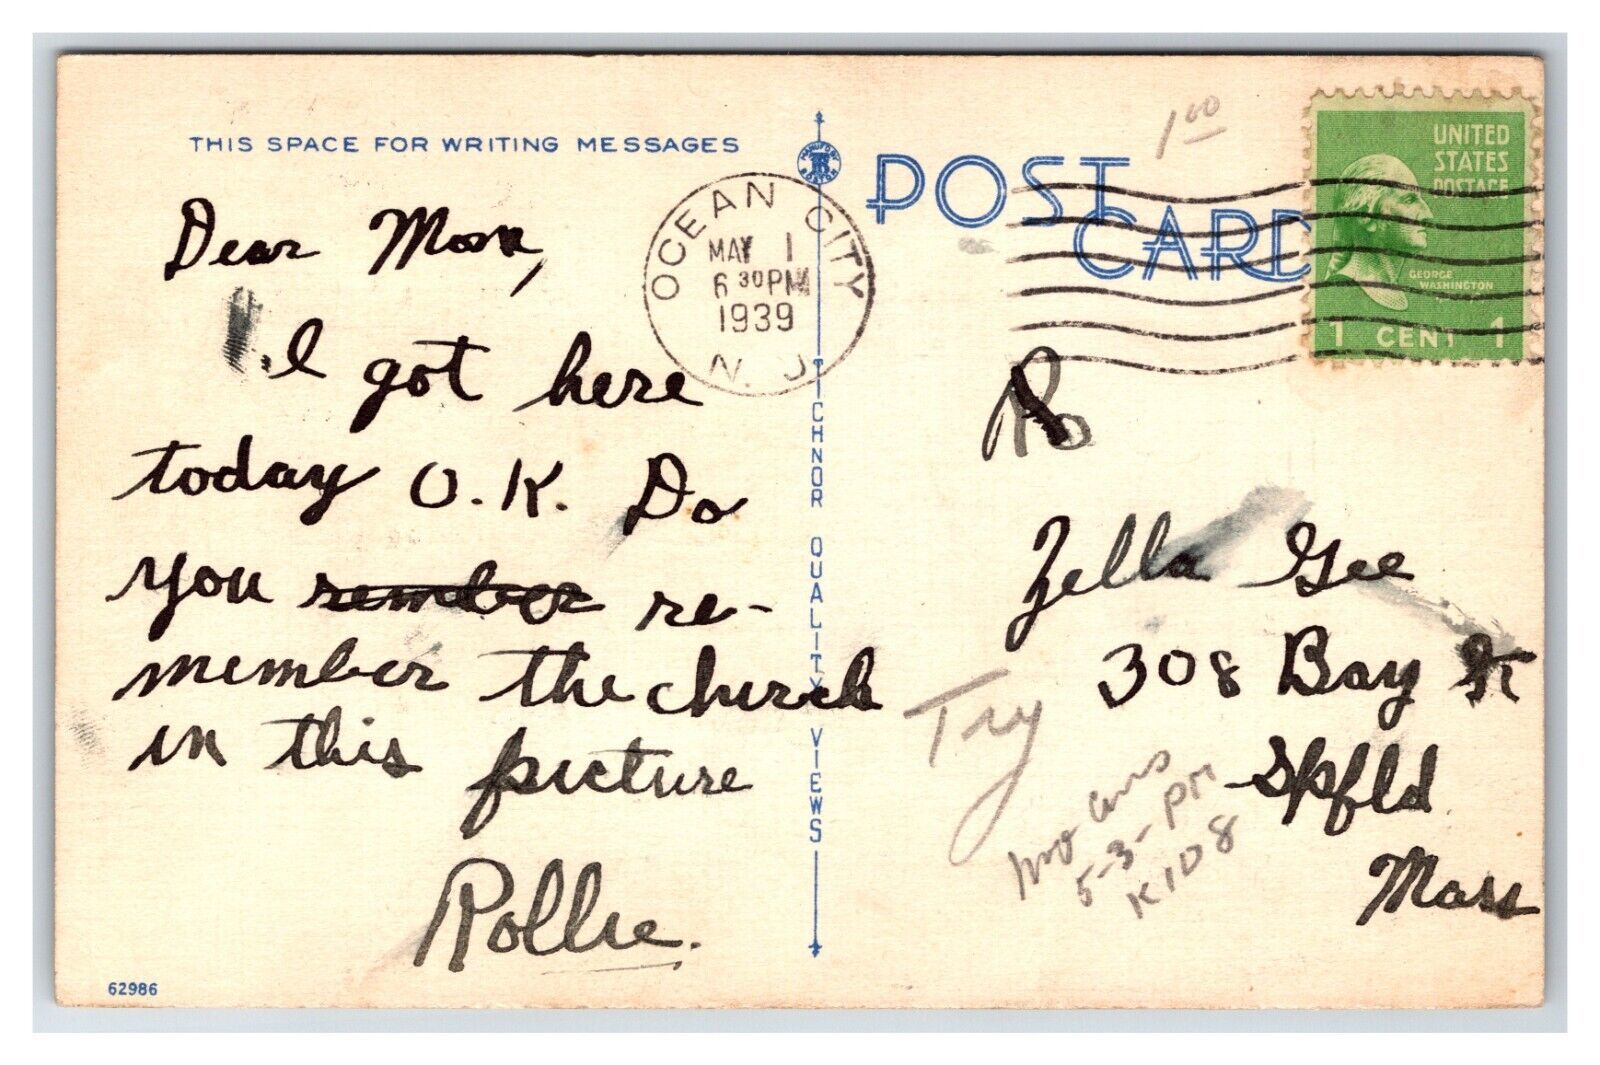 THIS SPACE FOR WRITING MESSAGES
Dear Mom,
I got here
today O.K. Do
you remember re-
member the church
in this picture
Rollie.
62986
MANUF BY
BOSTON
TICHNOR QUALITY VIEWS
OCEAN CITY
MAY 1
6 30 PM
1939
N. J.
POST CARD
1 00
UNITED
STATES
POSTAGE
GEORGE
WASHINGTON
1 CENT 1
Zella Gee
308 Bay St
Spfld.
Mass
Try
no ans
5-3-PM
K108